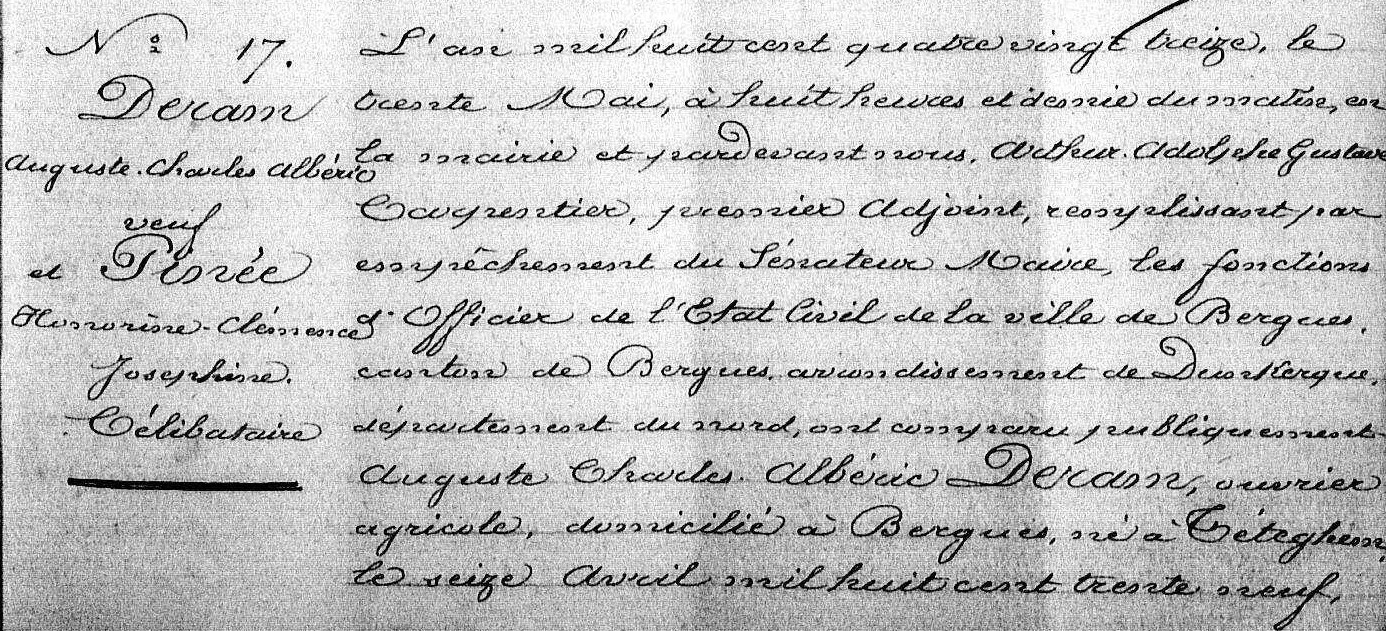 Nº 17.
Deram
Auguste. Charles Albéric
veuf
et Pinrée
Honorine-Clémence
Josephine.
Célibataire
L'an mil huit cent quatre vingt treize, le
trente Mai, à huit heures et demie du matin, en
la mairie et pardevant nous, Arthur. Adolphe Gustave
Carpentier, premier Adjoint, remplissant par
empêchement du Sénateur Maire, les fonctions
d'Officier de l'Etat Civil de la ville de Bergues,
canton de Bergues, arrondissement de Dunkerque,
département du nord, ont comparu publiquement
Auguste Charles. Albéric Deram, ouvrier
agricole, domicilié à Bergues, né à Téteghem,
le seize Avril mil huit cent trente neuf,